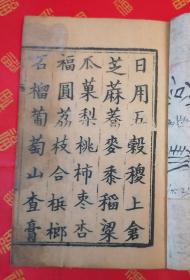 日用五穀稷上倉
芝蔴蕎麥黍稻梁
瓜菓梨桃柿枣杏
福圓荔枝合梹榔
石榴葡萄山查膏